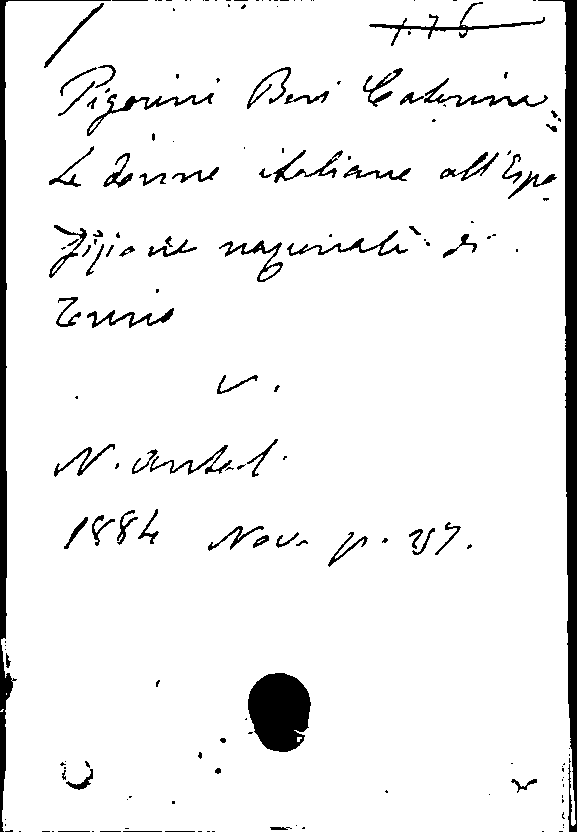 1.7.5
Pigorini Beri Caterina
Le donne italiane all'Espo
sizione nazionale di
Torino
v.
N. Antol.
1884 Nov. p. 257.